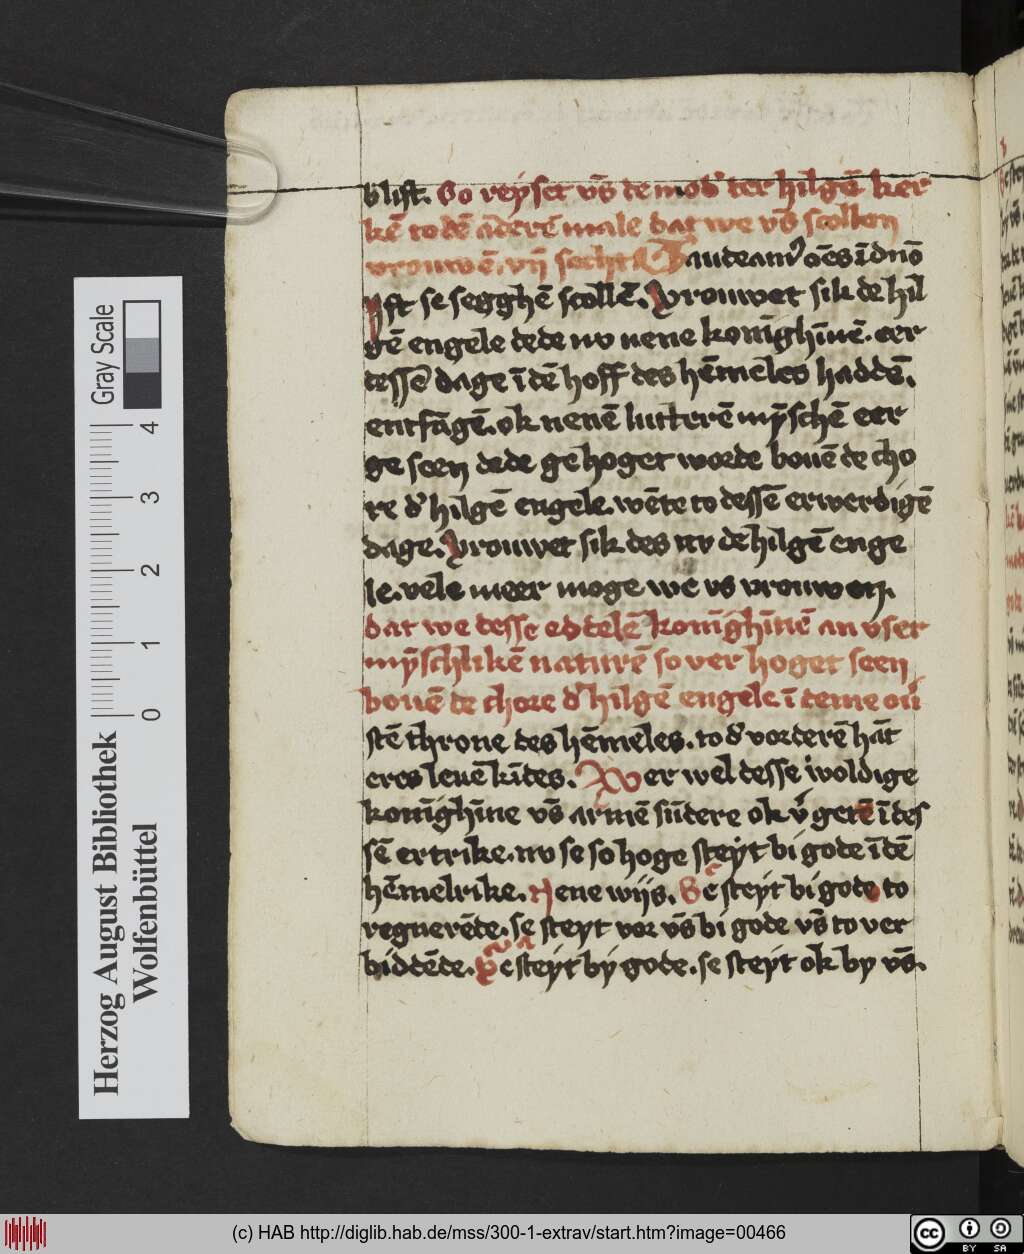 blift. So reyset vn̄s de mod' der hilgē ker
kē to dē āderē male dat we vn̄s scollen
vrouwē. vn̄ secht Gaudeam' oēs ī dnō
Yft se segghē scollē. Vrouwet sik de hil
gē engele dede nv nene konīghīnē. eer
dessē dage ī dē hoff des hēmeles haddē.
entfāgē. ok nenē lutterē mȳschē eer
ge seen dede ge hoget worde bouē de cho
re d' hilgē engele. wēte to dessē erwerdigē
dage. Vrouwet sik des nv de hilgē enge
le. vele meer moge we vs vrouwen.
dat we desse eddelē konīghīnē an vser
mȳschlikē naturē so ver hoget seen
bouē de chore d' hilgē engele ī deme ou'
stē throne des hēmeles. to d' vorderē hāt
eres leuē kīdes. Wer wel desse woldige
konīghīne vn̄s armē sūdere ok v'getē ī des
sē ertrike. nv se so hoge steyt bi gode ī dē
hēmelrike. Nene wijs. Se steyt bi gode to
regnerēde. se steyt vor vn̄s bi gode vn̄s to ver
biddēde. Se steyt by gode. se steyt ok by vn̄s.
Herzog August Bibliothek
Wolfenbüttel
0 1 2 3 4
Gray Scale
(c) HAB http://diglib.hab.de/mss/300-1-extrav/start.htm?image=00466
cc BY SA